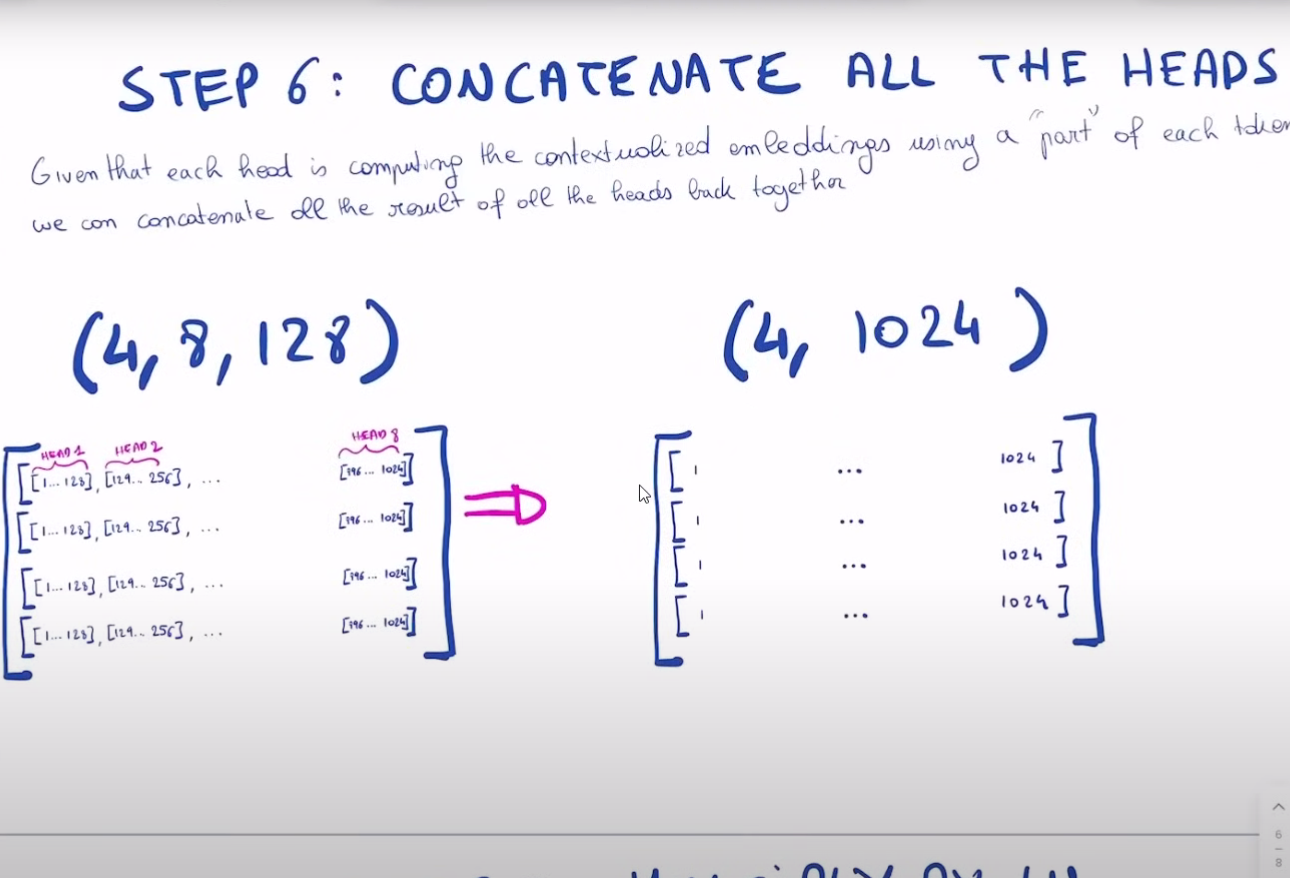 STEP 6: CONCATENATE ALL THE HEADS
Given that each head is computing the contextualized embeddings using a "part" of each token
we can concatenate all the result of all the heads back together
(4, 8, 128)
(4, 1024)
HEAD 1 HEAD 2 HEAD 8
[[1... 128], [129.. 256], ... [896 ... 1024]]
[[1... 128], [129.. 256], ... [896 ... 1024]]
[[1... 128], [129.. 256], ... [896 ... 1024]]
[[1... 128], [129.. 256], ... [896 ... 1024]]
[1 ... 1024]
[1 ... 1024]
[1 ... 1024]
[1 ... 1024]
6
8